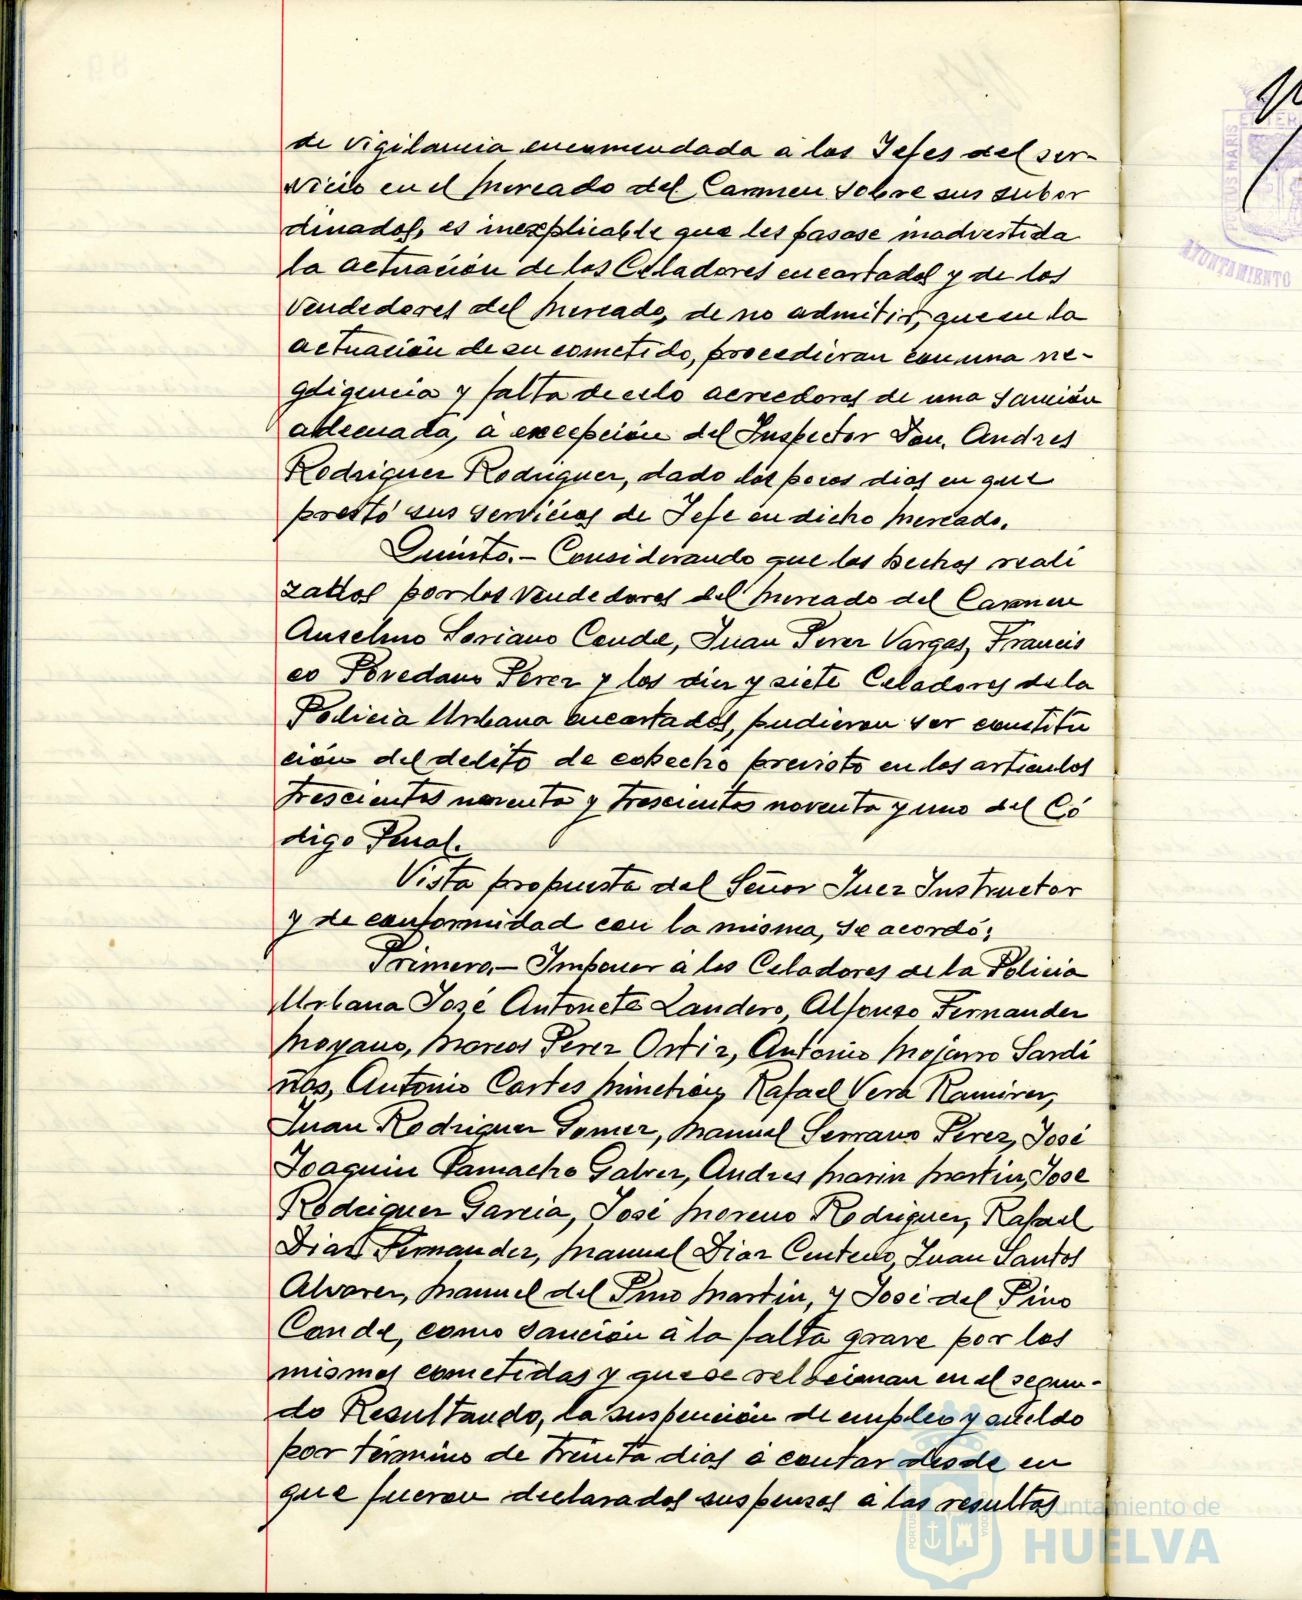 de vigilancia encomendada á los Jefes del ser-
vicio en el Mercado del Carmen sobre sus subor
dinados, es inexplicable que les pasase inadvertida
la actuación de los Celadores encartados y de los
vendedores del Mercado, de no admitir, que en la
actuación de su cometido, procedieran con una ne-
gligencia y falta de celo acreedoras de una sanción
adecuada, á excepción del Inspector Don. Andres
Rodriguez Rodriguez, dado los pocos dias en que
prestó sus servicios de Jefe en dicho Mercado.
Quinto.- Considerando que los hechos reali
zados por los vendedores del Mercado del Carmen
Anselmo Soriano Conde, Juan Perez Vargas, Francis
co Povedano Perez y los diez y siete Celadores de la
Policia Urbana encartados, pudieran ser constitu
ción del delito de cohecho previsto en los articulos
trescientos noventa y trescientos noventa y uno del Có
digo Penal.
Vista propuesta del Señor Juez Instructor
y de conformidad con la misma, se acordó:
Primero.- Imponer á los Celadores de la Policia
Urbana José Antonete Landero, Alfonso Fernandez
Moyano, Marcos Perez Ortiz, Antonio Mojarro Sardi
ñas, Antonio Cartes Minchón, Rafael Vera Ramirez,
Juan Rodriguez Gomez, Manuel Serrano Perez, José
Joaquin Camacho Galvez, Andres Marin Martin, Jose
Rodriguez Garcia, José Moreno Rodriguez, Rafael
Diaz Fernandez, Manuel Diaz Centeno, Juan Santos
Alvarez, Manuel del Pino Martin, y José del Pino
Conde, como sanción á la falta grave por los
mismos cometidas y que se relacionan en el segun-
do Resultando, la suspención de empleo y sueldo
por término de treinta dias á contar desde en
que fueron declarados suspensos á las resultas
PORTUS MARIS
ET TER
AYUNTAMIENTO
Ayuntamiento de
HUELVA